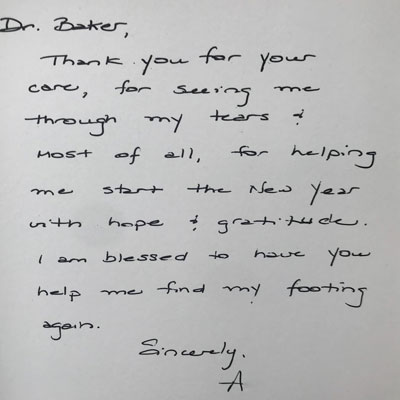 Dr. Baker,
Thank you for your
care, for seeing me
through my tears &
most of all, for helping
me start the New Year
with hope & gratitude.
I am blessed to have you
help me find my footing
again.
Sincerely,
A